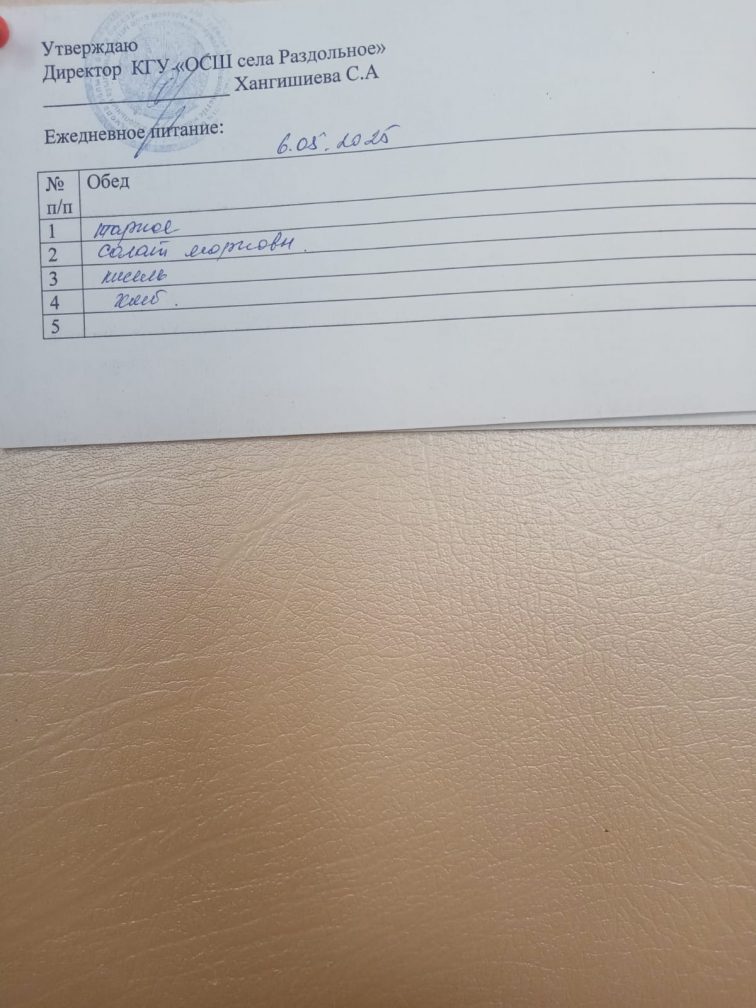 Утверждаю
Директор КГУ «ОСШ села Раздольное»
Хангишиева С.А
Ежедневное питание: 6.05.2025
№ п/п Обед
1 жаркое
2 салат морковн.
3 кисель
4 хлеб.
5